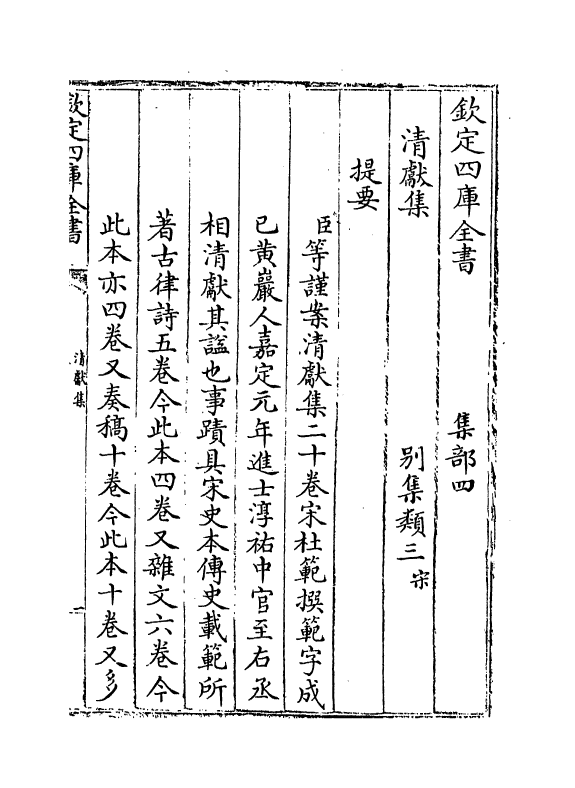 欽定四庫全書　集部四
清獻集　別集類三宋
提要
臣等謹案清獻集二十卷宋杜範撰範字成
已黃巖人嘉定元年進士淳祐中官至右丞
相清獻其諡也事蹟具宋史本傳史載範所
著古律詩五卷今此本四卷又雜文六卷今
此本亦四卷又奏稿十卷今此本十卷又多
欽定四庫全書
清獻集
一